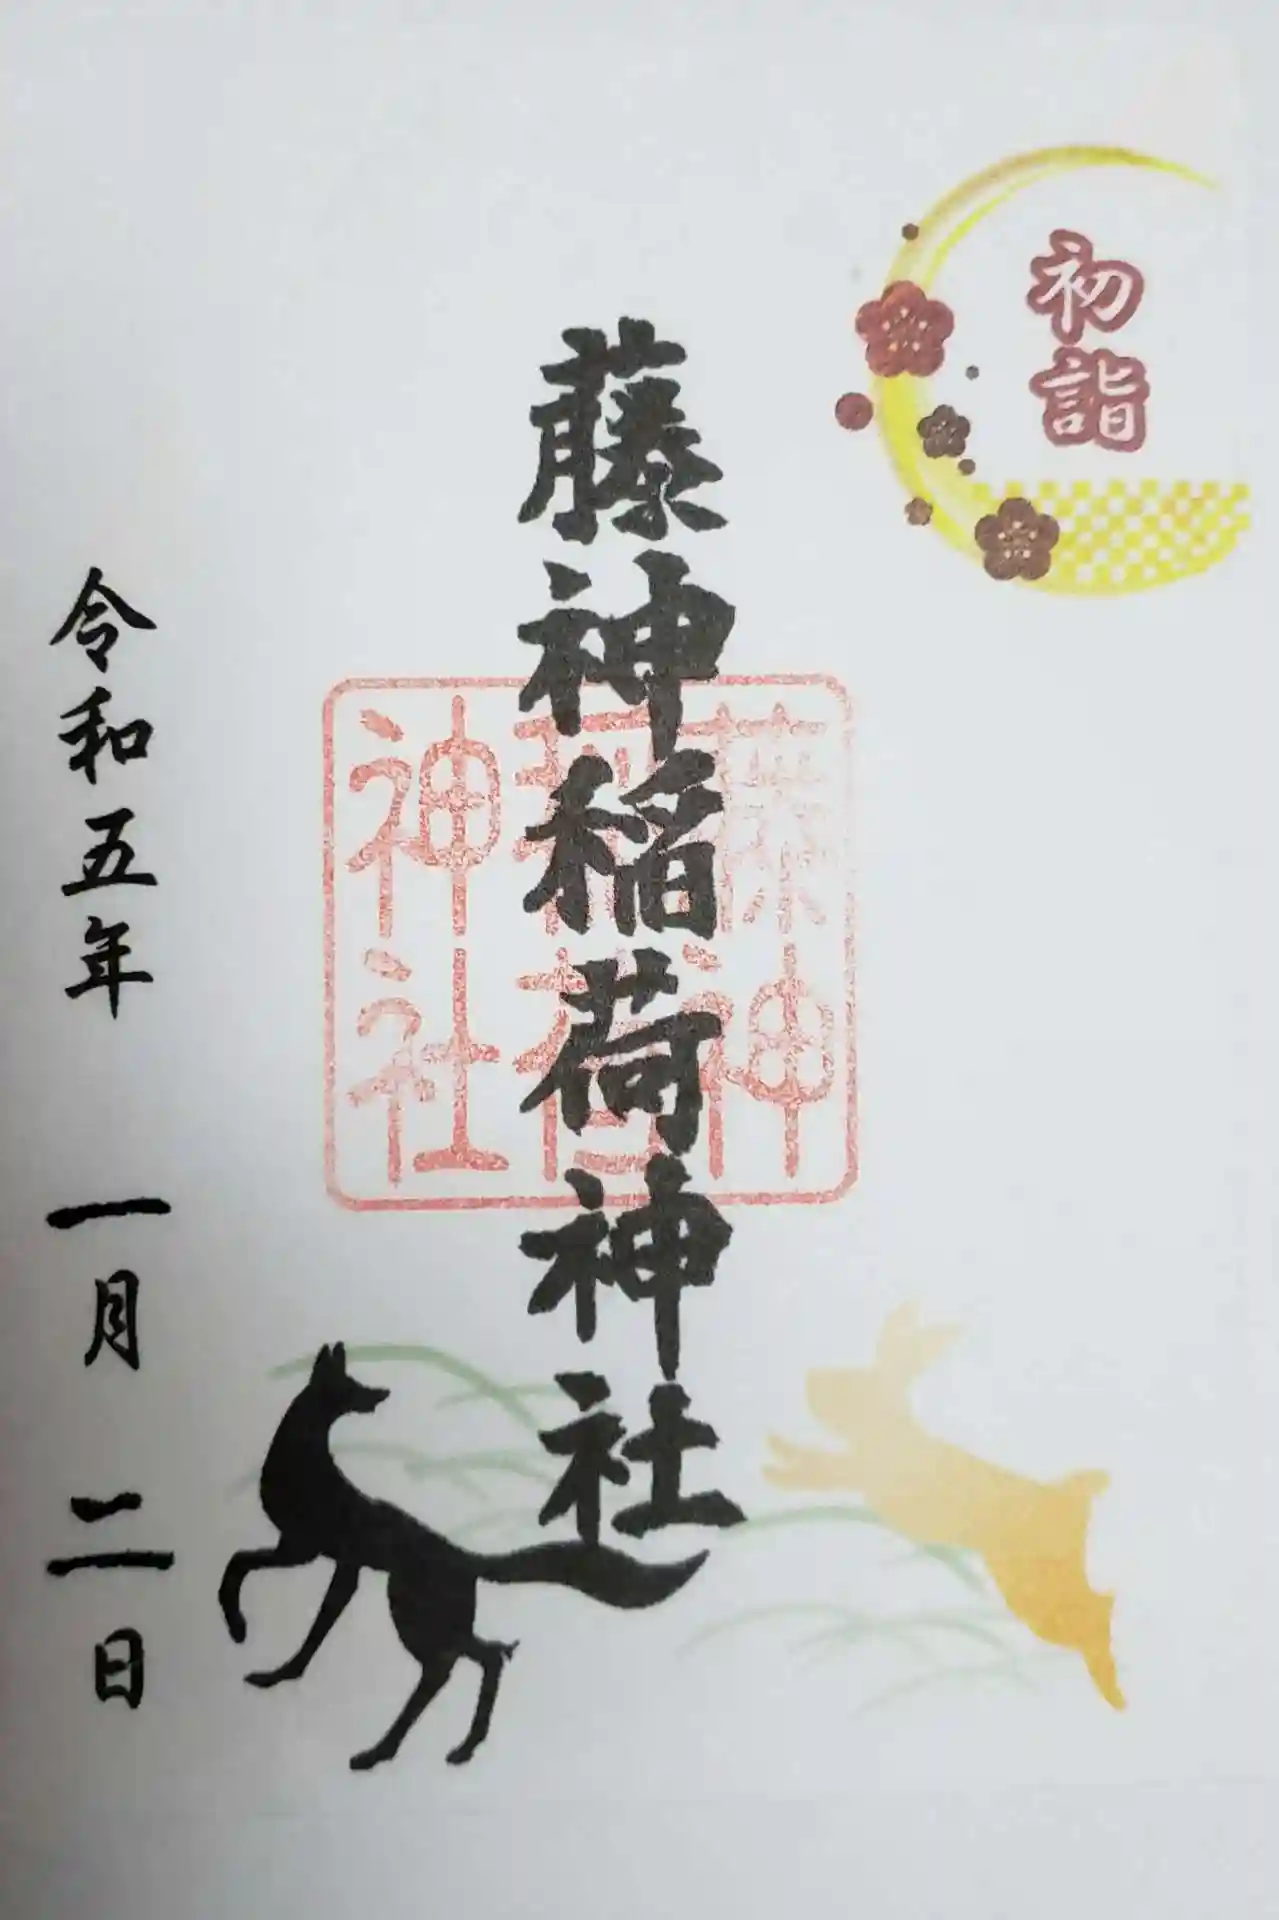 初詣
藤神稲荷神社
藤神
稲荷
神社
令和五年 一月 二日